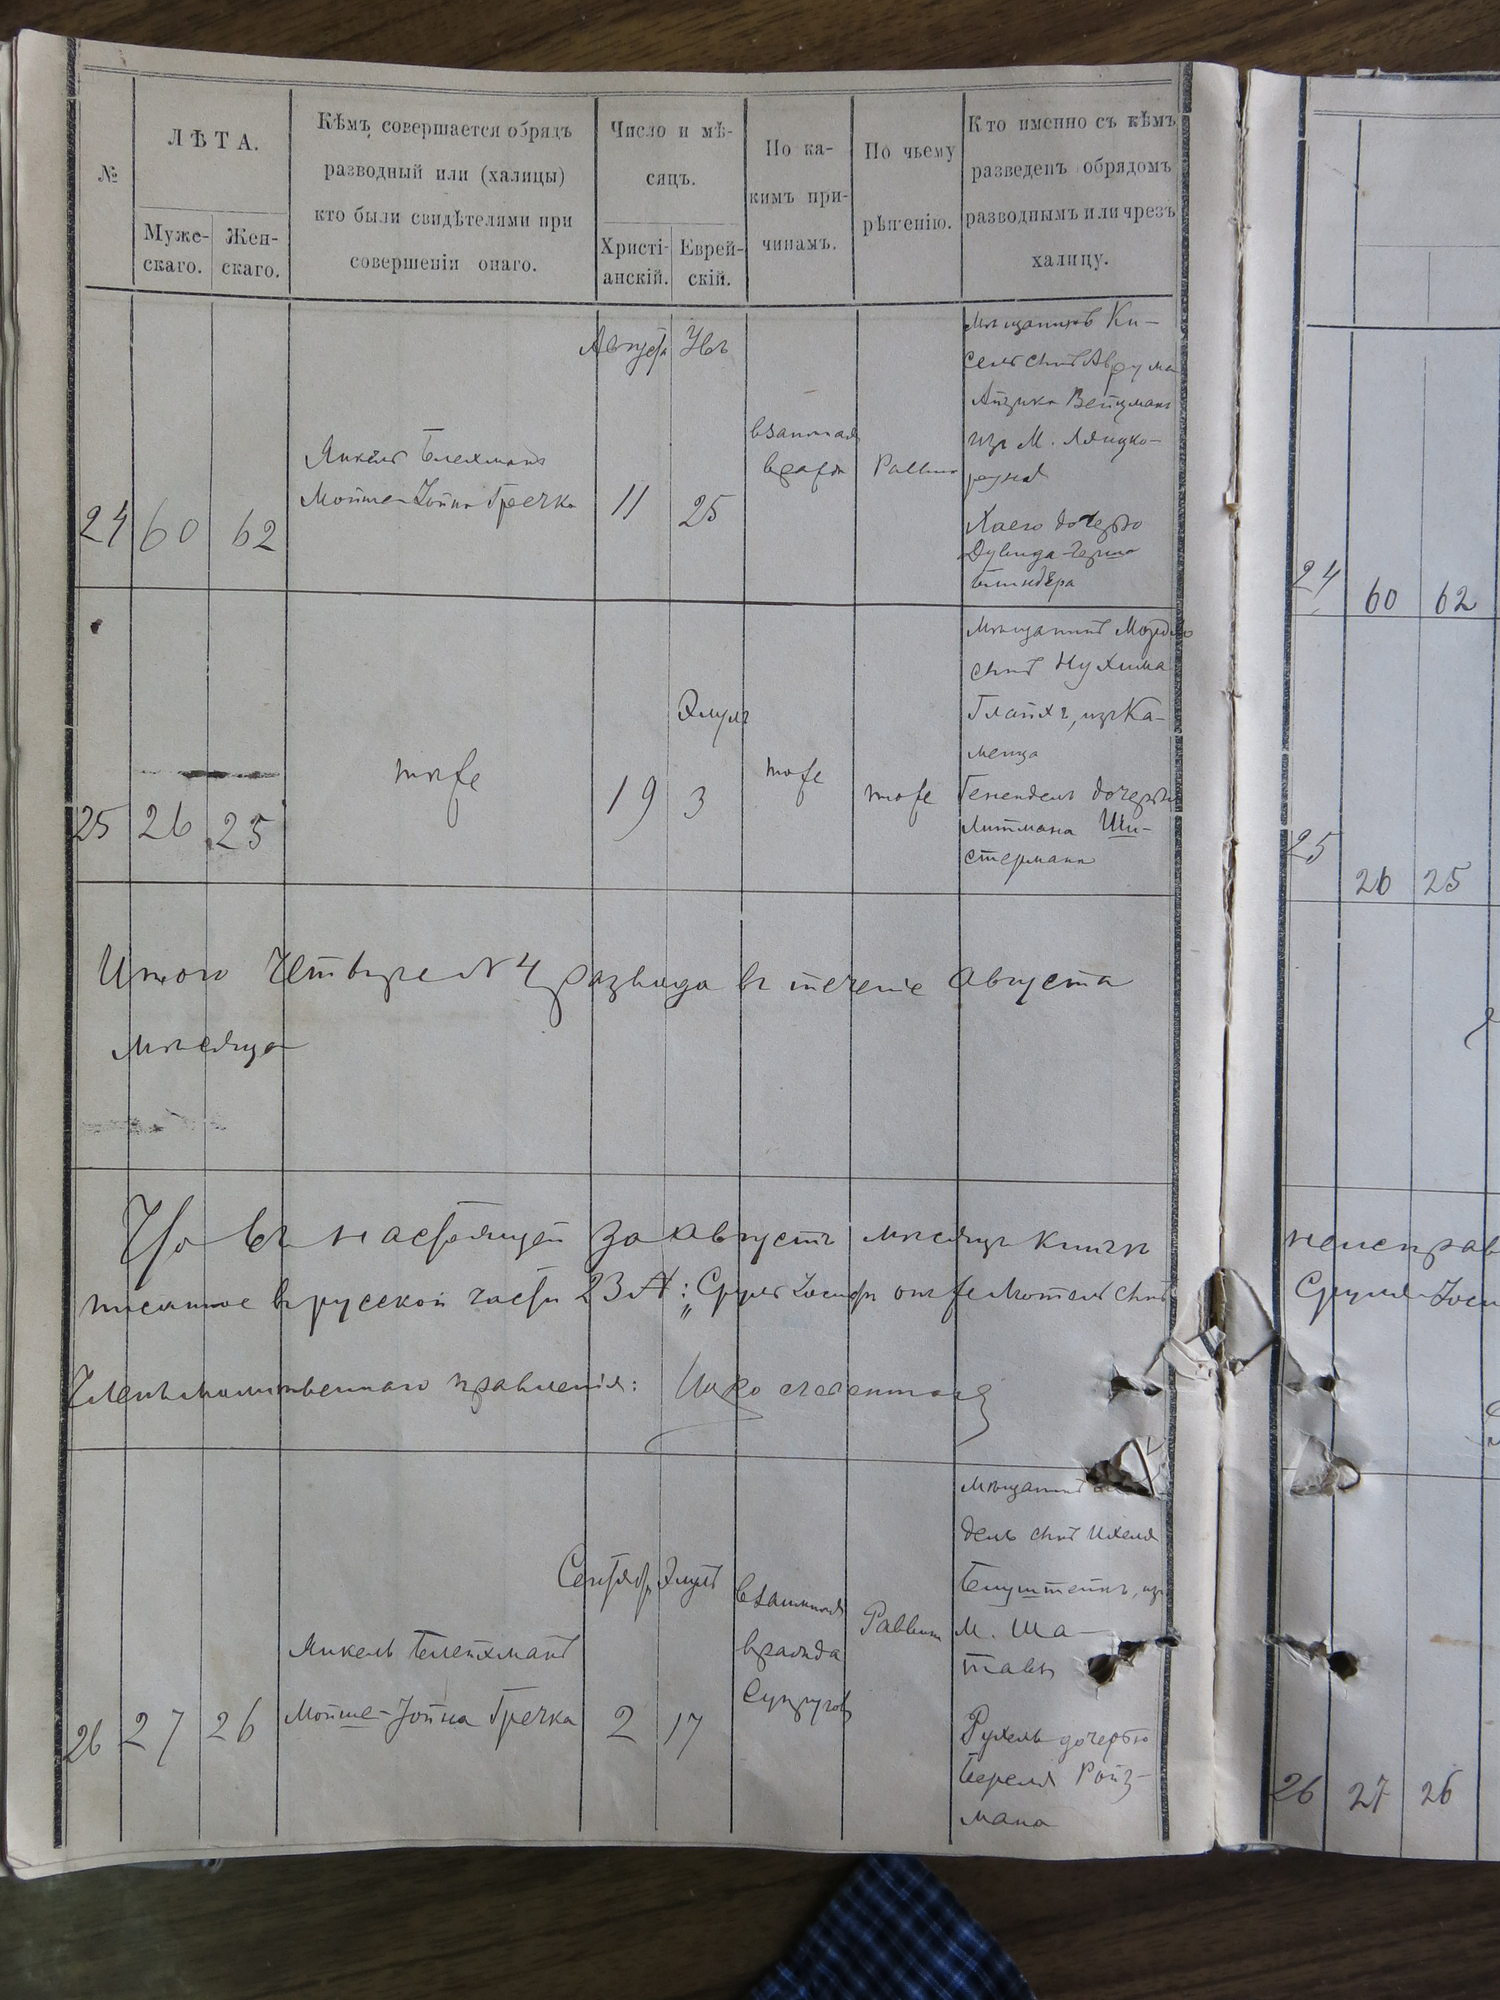 №
ЛѢТА.
Муже-
скаго.
Жен-
скаго.
Кѣмъ совершается обрядъ
разводный или (халицы)
кто были свидѣтелями при
совершеніи онаго.
Число и мѣ-
сяцъ.
Христі-
анскій.
Еврей-
скій.
По ка-
кимъ при-
чинамъ.
По чьему
рѣшенію.
Кто именно съ кѣмъ
разведенъ обрядомъ
разводнымъ или чрезъ
халицу.
24
60
62
Янкель Блехманъ
Мойше-Іойна Гречка
Августа
11
25
взаимная
вражда
Раввина
мѣщанинъ Ки-
сель сынъ Аврума
Айзика Вейцманъ
изъ М. Ляцко-
руня
Хаею дочерью
Дувида-Герша
25
26
25
тоже
19
Элулъ
3
тоже
тоже
Мѣщанинъ Мордко
сынъ Нухима
Глайхъ, изъ Ка-
менца
Генендель дочерью
Литмана Ши-
стермана
Итого четыре N 4 развода въ теченіе августа
мѣсяца
Что въ настоящей за августъ мѣсяцъ книгѣ
писанное въ русской части 23 №: „Сруль Іосифъ онже Мотель сынъ
Членъ молитвеннаго правленія:
26
27
26
Янкель Блейхманъ
Мойше-Іойна Гречка
Сентября
2
Элулъ
17
взаимная
вражда
супруговъ
Раввинъ
мѣщанинъ
дель сынъ Ихеля
изъ
М. Ша-
тавы
Рухель дочерью
Береля Ройз-
мана
24
60
62
25
26
25
неисправ
Сруля-Іоси
26
27
26